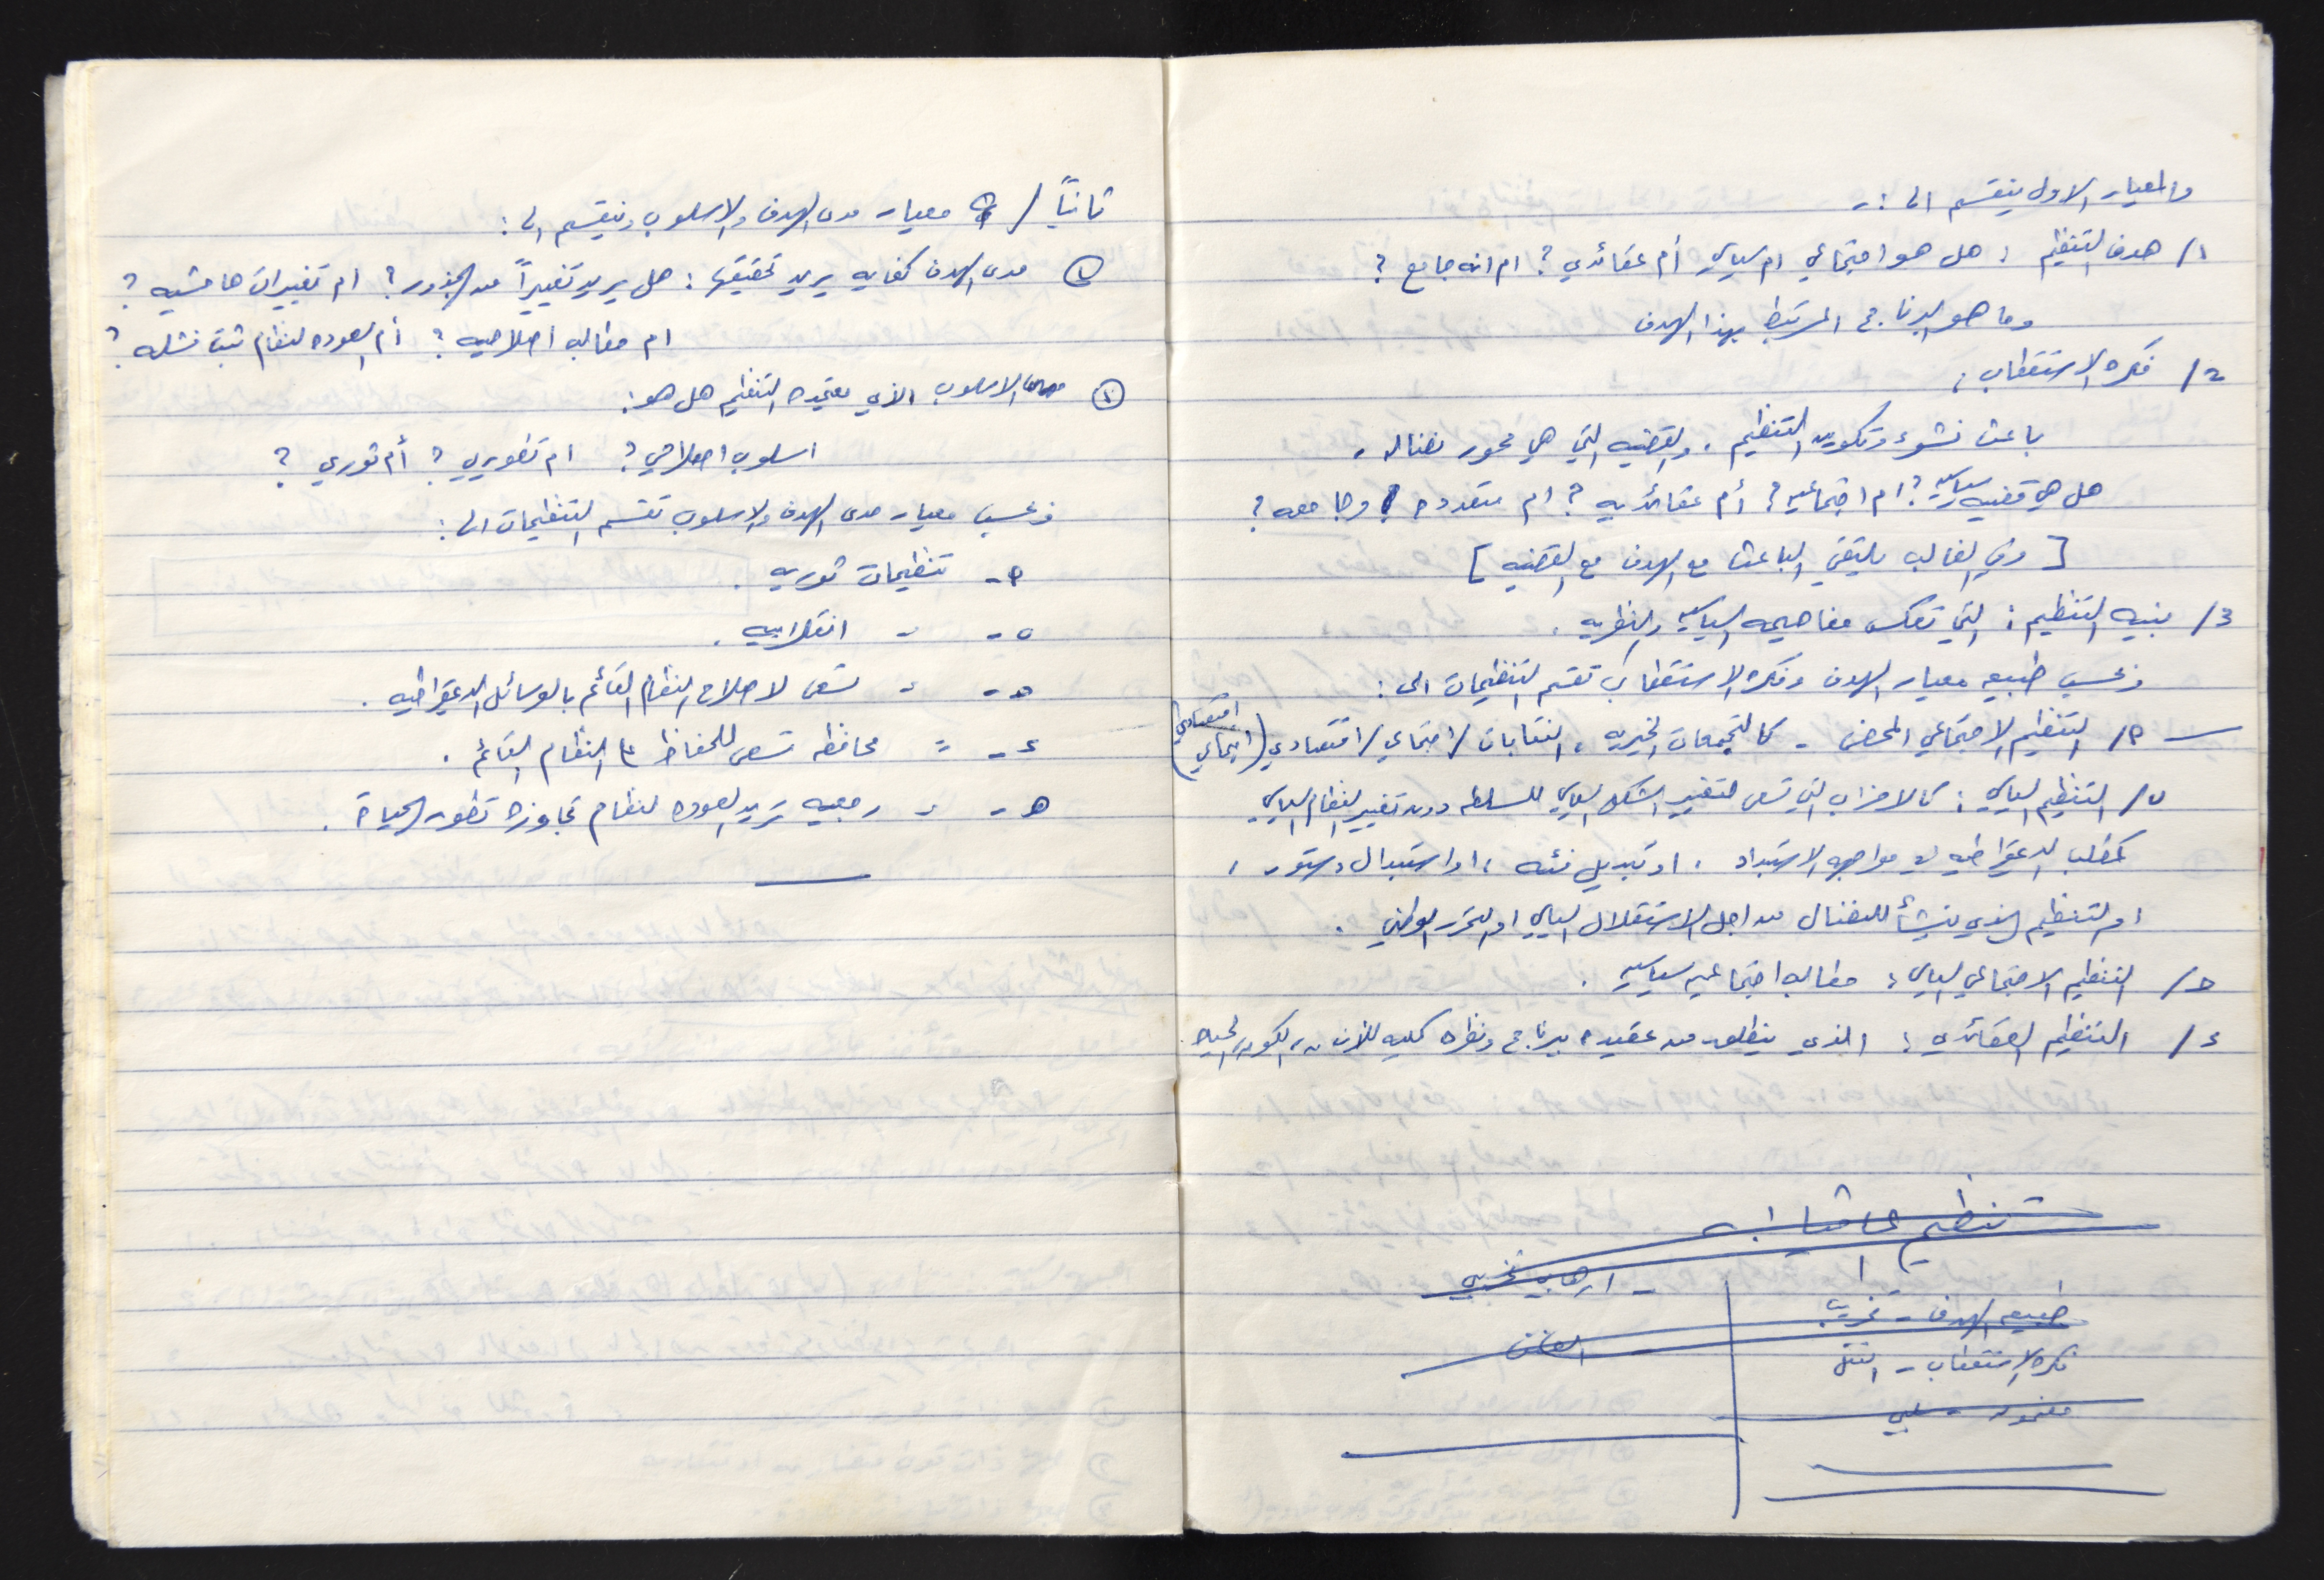 والمعيار الاول ينقسم الى :-
١/ هدف التنظيم : هل هو اجتماعي ام سياسي أم عقائدي ؟ ام انه جامع ؟
وما هو البرنامج المرتبط بهذا الهدف
٢/ فكره الاستقطاب :
باعث نشوء وتكوين التنظيم . والقضيه التي هي محور نضاله .
هل هي قضيه سياسيه ؟ ام اجتماعيه ؟ أم عقائديه ؟ ام متعدده وجامعه ؟
[ وفي الغالب يلتقي الباعث مع الهدف مع القضيه ]
٣/ بنيه التنظيم : التي تعكس مفاهيمه السياسيه والنظريه .
وحسب طبيعه معيار الهدف وفكره الاستقطاب تقسم التنظيمات الى :
أ/ التنظيم الاجتماعي المحض - كالتجمعات الخيريه ، النقابات / اجتماعي / اقتصادي
ب/ التنظيم السياسي : كالاحزاب التي تسعى لتغيير الشكل السياسي للسلطه دون تغيير النظام السياسي
كمطلب الديمقراطيه في مواجهه الاستبداد . او تبديل فئه ، او استبدال دستور ،
او التنظيم الذي ينشأ للنضال من اجل الاستقلال السياسي او التحرر الوطني .
ح/ التنظيم الاجتماعي السياسي : مطالب اجتماعيه سياسيه .
ء/ التنظيم العقائدي : الذي ينطلق من عقيده ، برنامج ونظره كليه للانسان والكون والحياه
تنظيم
- ارهابي تخريبي
طبيعه الهدف - تخريب
فكره الاستقطاب - القتل
ثانياً / معيار مدى الهدف والاسلوب وينقسم الى :
١ مدى الهدف كغايه يريد تحقيقها : هل يريد تغييراً من الجذور ؟ ام تغييرات هامشيه ؟
ام مطالب اصلاحيه ؟ أم العوده لنظام ثبت فشله ؟
٢ الاسلوب الذي يعتمده التنظيم هل هو :
اسلوب اصلاحي ؟ ام تطويري ؟ أم ثوري ؟
وحسب معيار مدى الهدف والاسلوب تقسم التنظيمات الى :
أ - تنظيمات ثوريه .
ب - " انقلابيه .
ح - " تسعى لاصلاح النظام القائم بالوسائل الديمقراطيه .
ء - " محافظه تسعى للحفاظ على النظام القائم .
ه - " رجعيه تريد العوده لنظام تجاوزه تطور الحياة .